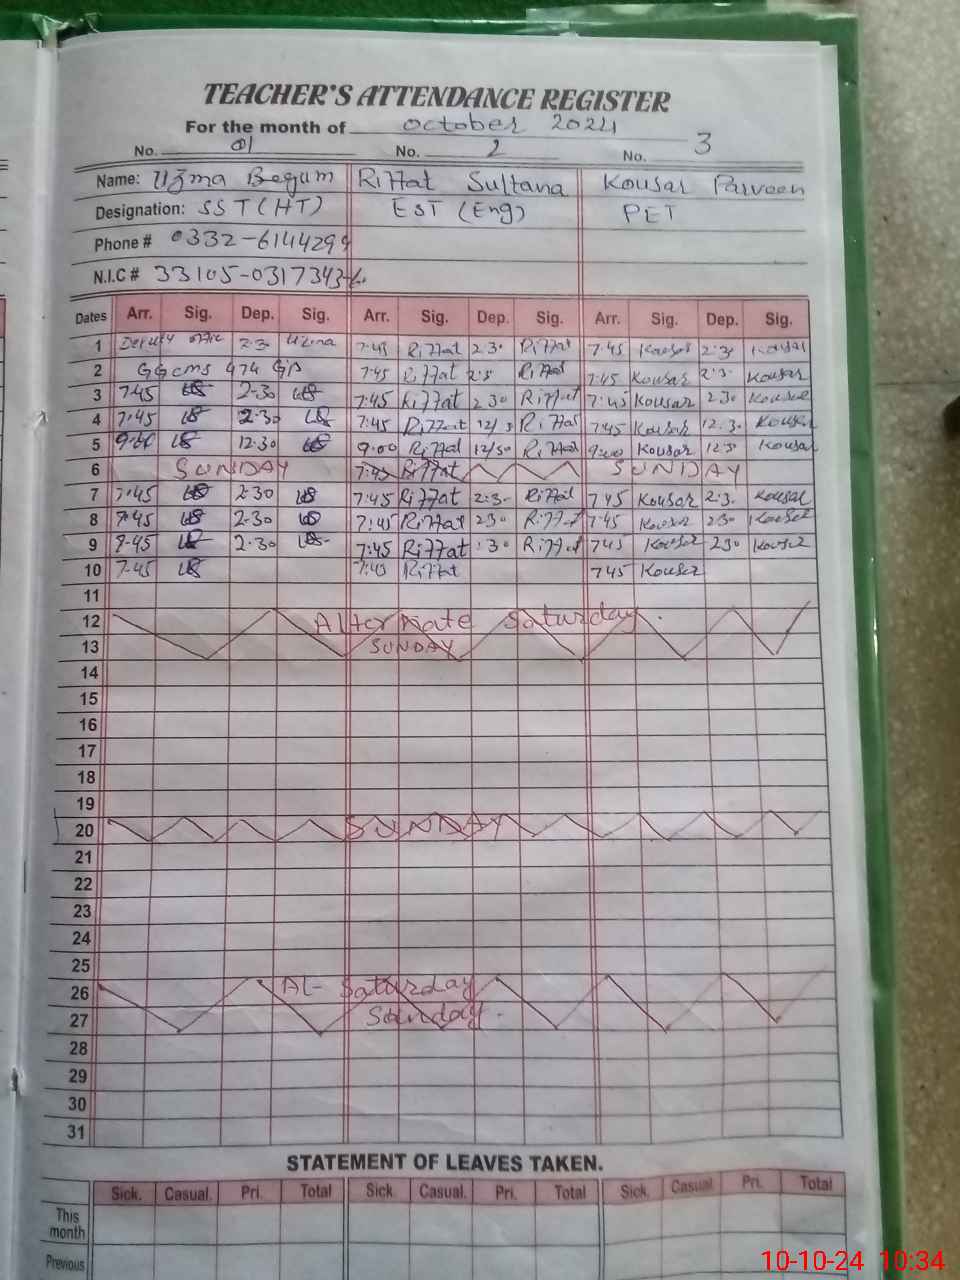 TEACHER'S ATTENDANCE REGISTER
For the month of October 2024
No. 01 No. 2 No. 3
Name: Uzma Begum Riffat Sultana Kousar Parveen
Designation: SST (HT) EST (Eng) PET
Phone # 0332-6144299
N.I.C # 33105-0317343-6
Dates Arr. Sig. Dep. Sig. Arr. Sig. Dep. Sig. Arr. Sig. Dep. Sig.
1 2:30 Uzma 7:45 Riffat 2:30 Riffat 7:45 Kousar 2:30 Kousar
2 GGCMS 474 GB 7:45 Riffat 2:3 Riffat 7:45 Kousar 2:3 Kousar
3 7-45 2-30 7:45 Riffat 230 Riffat 7:45 Kousar 230 Kousar
4 7-45 2-30 7:45 Riffat Riffat 7:45 Kousar 12:30 Kousar
5 9-00 12-30 9:00 Riffat 12/30 Riffat 9:00 Kousar 12:3 Kousar
6 SUNDAY 7:45 Riffat SUNDAY
7 7-45 2-30 7:45 Riffat 2:3- Riffat 745 Kousar 2:3- Kousar
8 7-45 2-30 7:45 Riffat 230 Riffat 7:45 Kousar 230 Kousar
9 7-45 2-30 7:45 Riffat :30 Riffat 745 Kousar 230 Kousar
10 7-45 7:45 Riffat 745 Kousar
11
12 Alternate Saturday.
13 SUNDAY
14
15
16
17
18
19
20 SUNDAY
21
22
23
24
25
26 Al- Saturday
27 Sunday.
28
29
30
31
STATEMENT OF LEAVES TAKEN.
Sick. Casual. Pri. Total Sick. Casual. Pri. Total Sick. Casual Pri. Total
This month
Previous
10-10-24 10:34